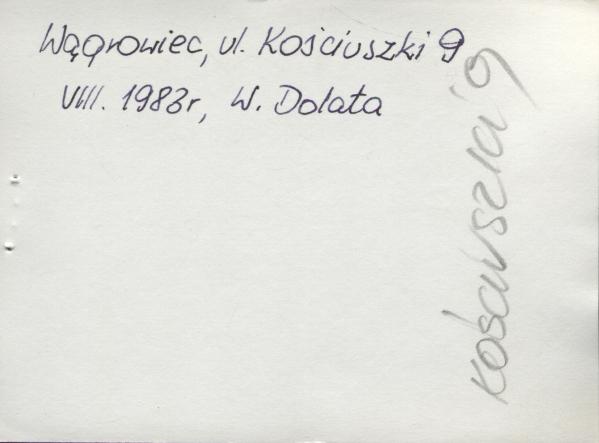 Wągrowiec, ul. Kościuszki 9
VIII. 1983r, W. Dolata
Kościuszki 9